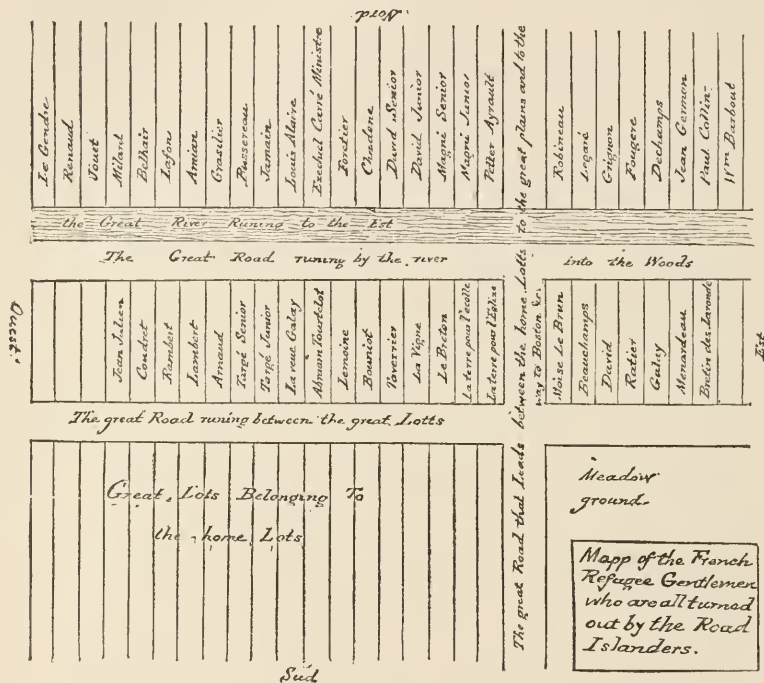 Nord.
Le Gendre
Renaud
Jouet
Milard
Belhair
Lafon
Amian
Grasilier
Russereau
Jamain
Louis Alaire
Ezechiel Carré Ministre
Fordier
Chadene
David Senior
David Junior
Magni Senior
Magni Junior
Petter Ayrault
Robineau
Legaré
Grignon
Fougere
Dechamps
Jean Germon
Paul Collin
Wm Barbout
the Great River Runing to the Est
The Great Road runing by the river into the Woods
Ouest.
Jean Julien
Coudret
Rambert
Lambert
Arnaud
Targé Senior
Targé Junior
La veue Galay
Abraam Tourtelot
Lemoine
Bouniot
Taverrier
La Vigne
Le Breton
La terre pour l'ecolle
La terre pour l'Eglize
Moise Le Brun
Beauchamps
David
Ratier
Galay
Menardeau
Bretin des Laronde
Est
The great Road runing between the great Lotts
The great Road that Leads between the home Lotts to the great plans and to the
way to Boston &c
Great Lots Belonging To
the home Lots
Meadow
ground
Mapp of the French
Refugee Gentlemen
who are all turned
out by the Road
Islanders.
Sud